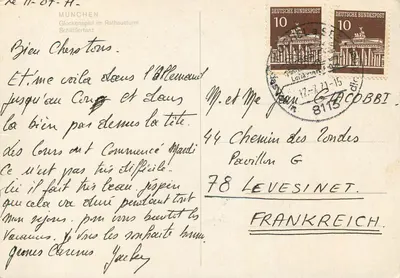 Le 11-07-71.
MÜNCHEN
Glockenspiel im Rathausturm
Schäfflertanz
Bien chers tous.
Et me voila dans l'Allemand
jusqu'au Cou et dans
la bien pas dessus la tête.
Les Cours ont Commencé Mardi
Ce n'est pas très difficile.
Ici il fait très beau, j'espère
que cela va durer pendant tout
mon séjour. pour vous bientôt les
Vacances. Je vous les souhaite bonnes
grosses bises
DEUTSCHE BUNDESPOST
10
DEUTSCHE BUNDESPOST
10
8115
M. et Me Jean
44 Chemin des Rondes
Pavillon G
78 LEVESINET.
FRANKREICH.